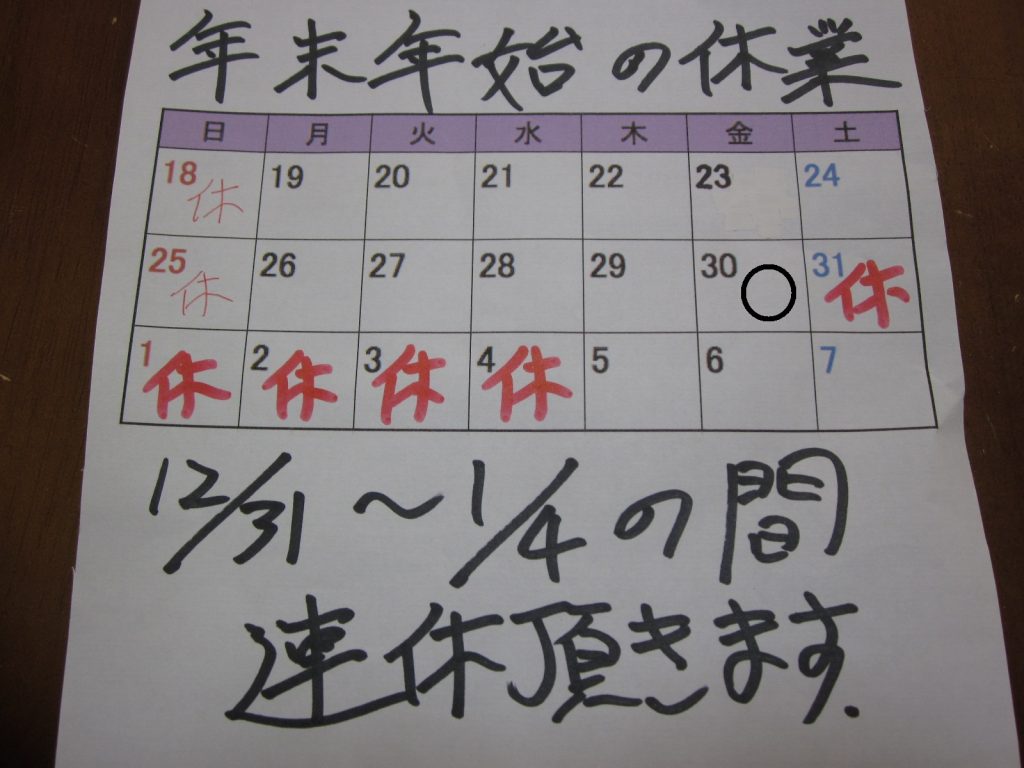 年末年始の休業
日 月 火 水 木 金 土
18 休 19 20 21 22 23 24
25 休 26 27 28 29 30 31 休
1 休 2 休 3 休 4 休 5 6 7
12/31〜1/4の間
連休頂きます.